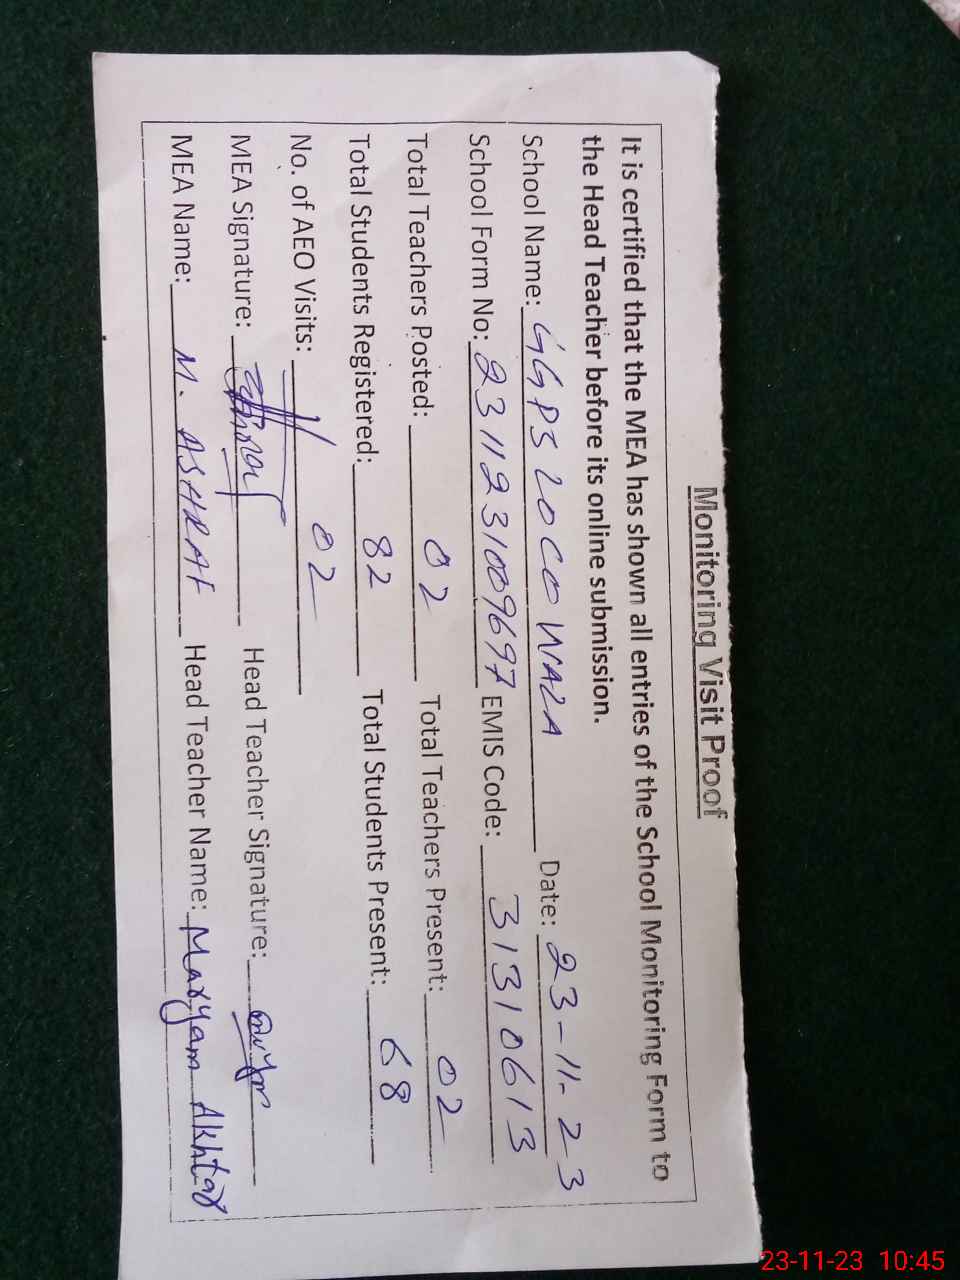 Monitoring Visit Proof
It is certified that the MEA has shown all entries of the School Monitoring Form to
the Head Teacher before its online submission.
School Name: GGPS LOCO WALA Date: 23-11-23
School Form No: 2311231009697 EMIS Code: 31310613
Total Teachers Posted: 02 Total Teachers Present: 02
Total Students Registered: 82 Total Students Present: 68
No. of AEO Visits: 02
MEA Signature: Head Teacher Signature:
MEA Name: M. ASHRAF Head Teacher Name: Maryam Akhtar
23-11-23 10:45